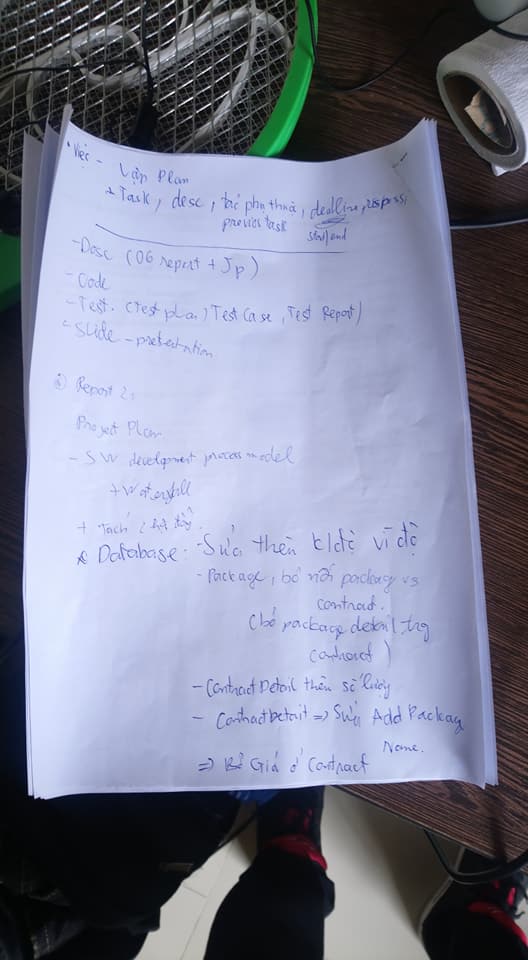 • Việc - Lập Plan
+ Task, desc, bị phụ thuộc, deadline, respossi
previos task start/end
- Dosc (06 report + Jp)
- Code
- Test. (Test plan, Test Case, Test Report)
- Slide - presentation
Report 2:
Project Plan
- SW development process model
+ Waterfall
+ Tách
* Database: - Sửa thên kđộ vĩ độ
- Package, bỏ nối package vs
contract.
(bỏ package detail trg
contract)
- ContractDetail thên số lượng
- Contractdetail => Sửa Add Package
Name.
=> Bỏ Giá ở Contract